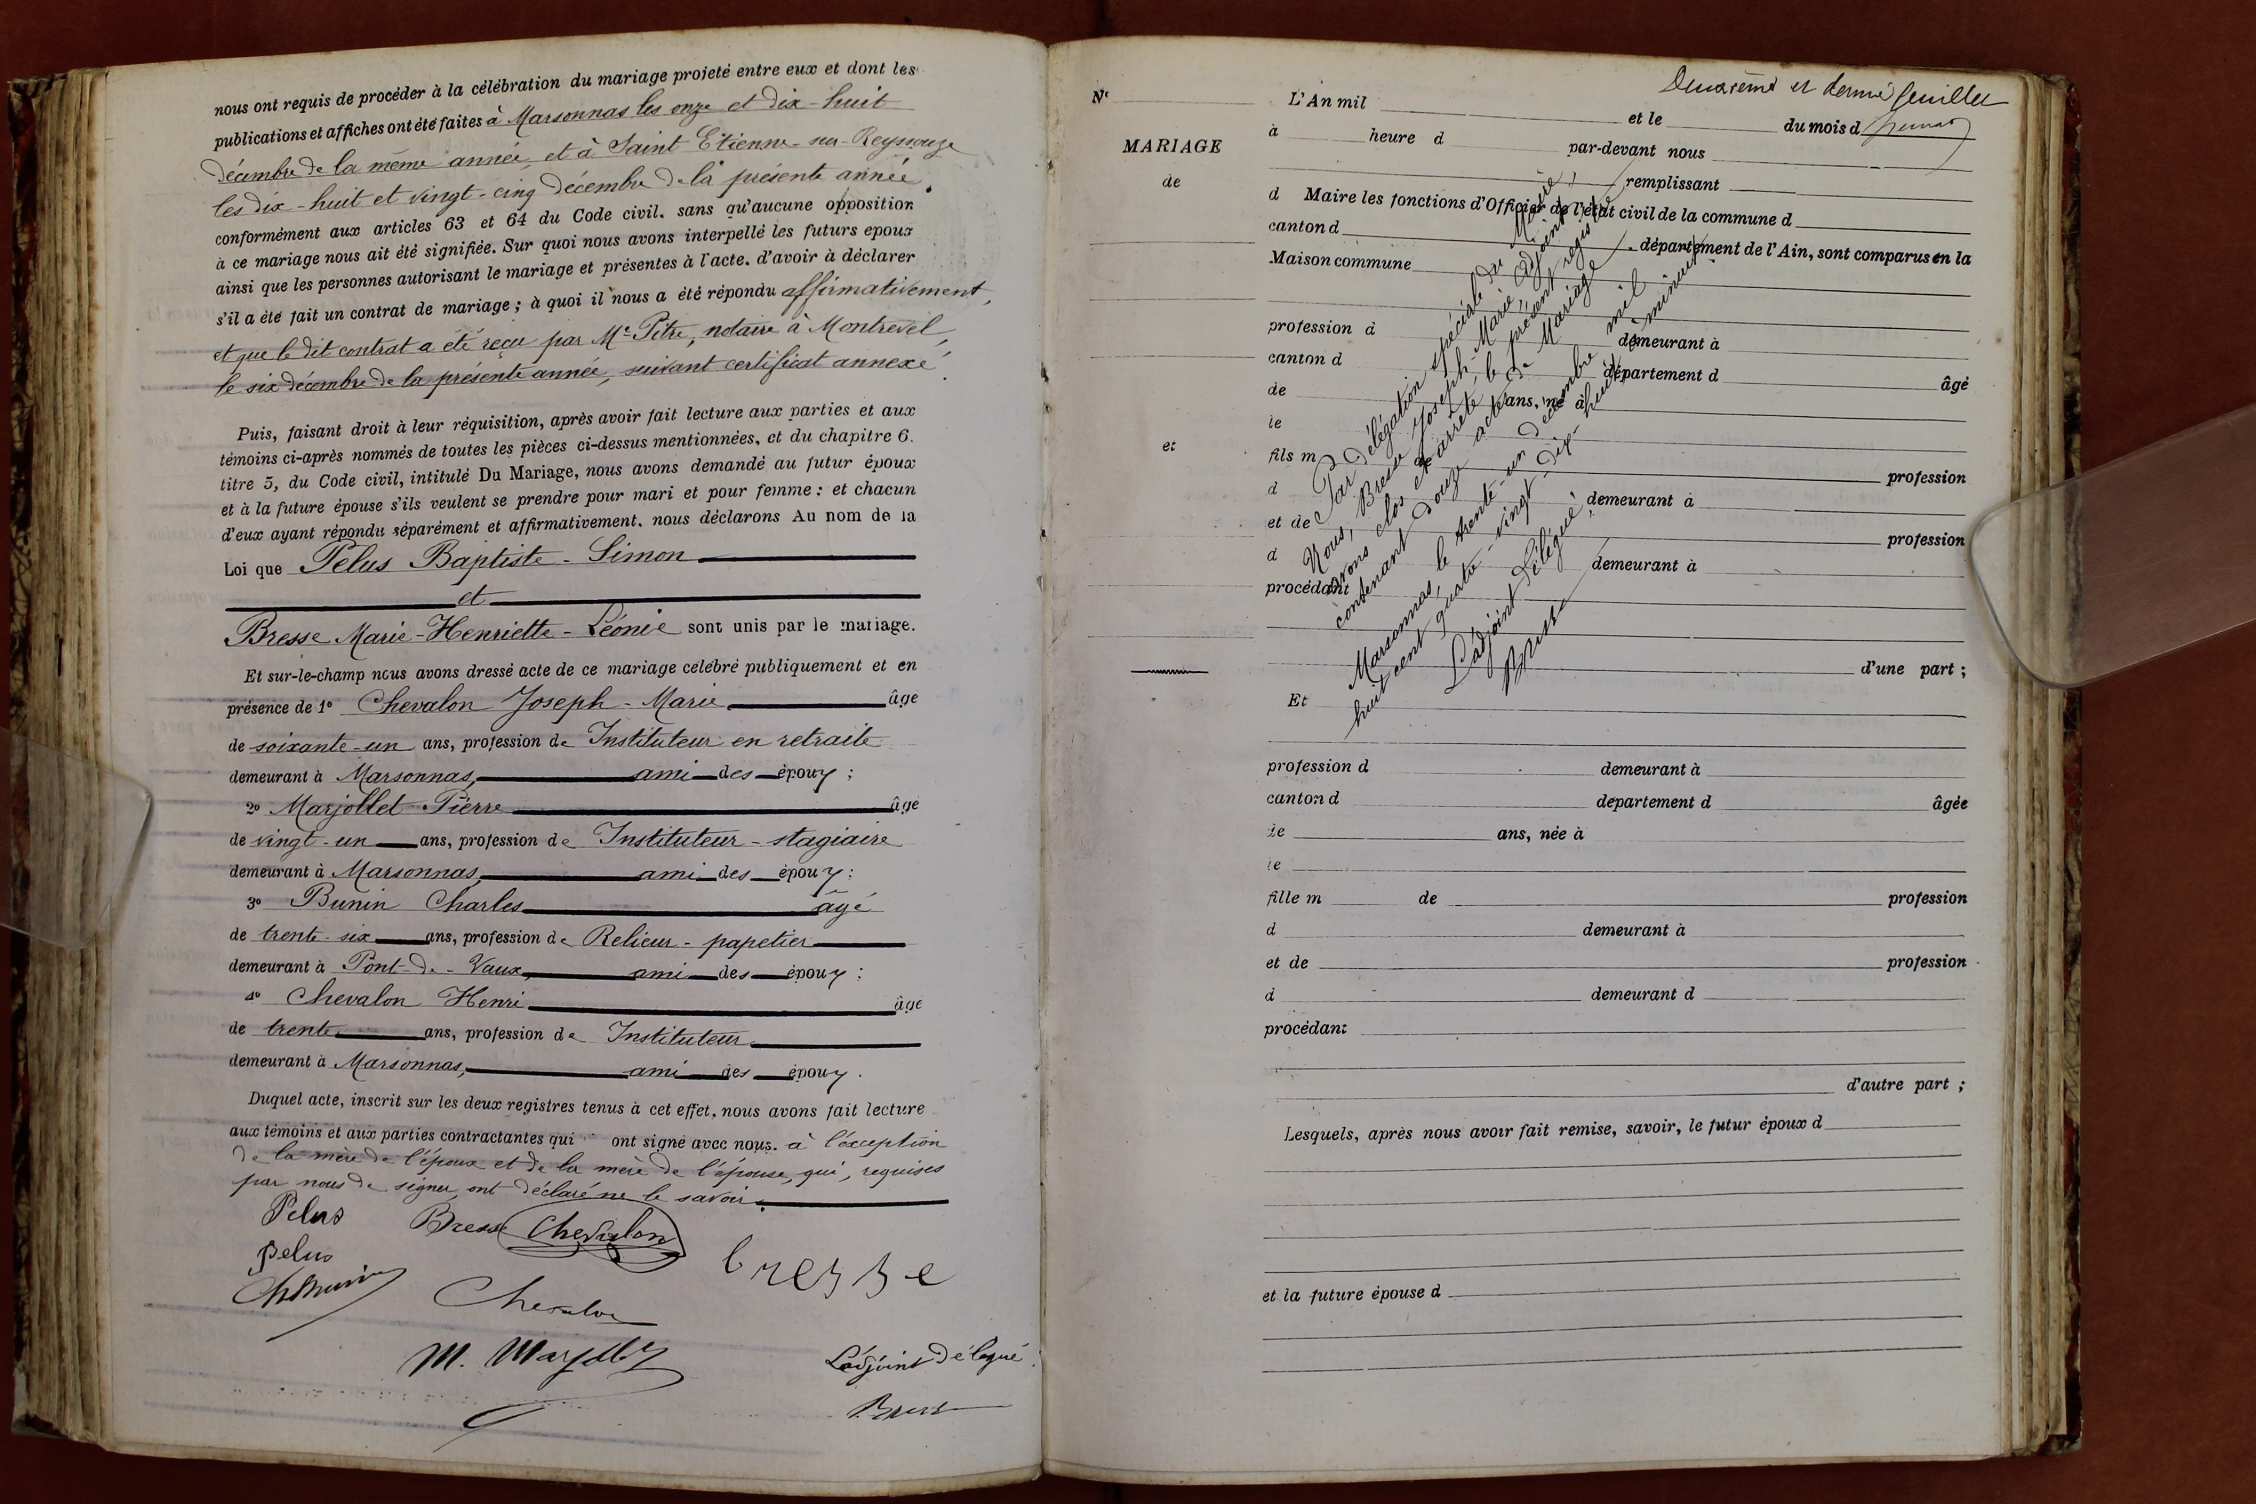 nous ont requis de procéder à la célébration du mariage projeté entre eux et dont les
publications et affiches ont été faites à Marsonnas les onze et dix-huit
décembre de la même année, et à Saint Etienne-sur-Reyssouze
les dix-huit et vingt-cinq décembre de la présente année.
conformément aux articles 63 et 64 du Code civil, sans qu'aucune opposition
à ce mariage nous ait été signifiée. Sur quoi nous avons interpellé les futurs epoux
ainsi que les personnes autorisant le mariage et présentes à l'acte, d'avoir à déclarer
s'il a été fait un contrat de mariage ; à quoi il nous a été répondu affirmativement,
et que le dit contrat a été reçu par Me Pitre, notaire à Montrevel,
le six décembre de la présente année, suivant certificat annexé.
Puis, faisant droit à leur réquisition, après avoir fait lecture aux parties et aux
témoins ci-après nommés de toutes les pièces ci-dessus mentionnées, et du chapitre 6.
titre 5, du Code civil, intitulé Du Mariage, nous avons demandé au futur époux
et à la future épouse s'ils veulent se prendre pour mari et pour femme : et chacun
d'eux ayant répondu séparément et affirmativement, nous déclarons Au nom de la
Loi que Pelus Baptiste-Simon
et
Bresse Marie-Henriette-Léonie sont unis par le mariage.
Et sur-le-champ nous avons dressé acte de ce mariage célébré publiquement et en
présence de 1° Chevalon Joseph-Marie âge
de soixante-un ans, profession de Instituteur en retraite
demeurant à Marsonnas, ami des époux ;
2° Marjollet Pierre âgé
de vingt-un ans, profession de Instituteur-stagiaire
demeurant à Marsonnas, ami des époux :
3° Bunin Charles âgé
de trente-six ans, profession de Relieur-papetier
demeurant à Pont-de-Vaux, ami des époux :
4° Chevalon Henri âge
de trente ans, profession de Instituteur
demeurant à Marsonnas, ami des époux.
Duquel acte, inscrit sur les deux registres tenus à cet effet, nous avons fait lecture
aux témoins et aux parties contractantes qui ont signé avec nous. à l'exception
de la mère de l'époux et de la mère de l'épouse, qui, requises
par nous de signer, ont déclaré ne le savoir.
Pelus Bresse Chevalon
Pelus bresse
Ch Bunin
Chevalon
M. Marjollet
L'adjoint délégué.
Bresse
Deuxième et dernier feuillet
N°
L'An mil et le du mois d
à heure d par-devant nous
MARIAGE
de
remplissant
d Maire les fonctions d'Officier de l'état civil de la commune d
canton d département de l'Ain, sont comparus en la
Maison commune
profession d demeurant à
canton d département d âgé
de ans, né à
le
et
fils m de profession
d demeurant à
et de profession
d demeurant à
procédant
d'une part ;
Par délégation spéciale du Maire,
Nous, Bresse Joseph-Marie, Adjoint,
avons clos et arrêté le présent registre
contenant douze actes de Mariage.
Marsonnas, le trente-un décembre mil
huit cent quatre-vingt-dix-huit, à minuit.
L'adjoint délégué,
Bresse
Et
profession d demeurant à
canton d département d âgée
de ans, née à
le
fille m de profession
d demeurant à
et de profession
d demeurant d
procédant
d'autre part ;
Lesquels, après nous avoir fait remise, savoir, le futur époux d
et la future épouse d